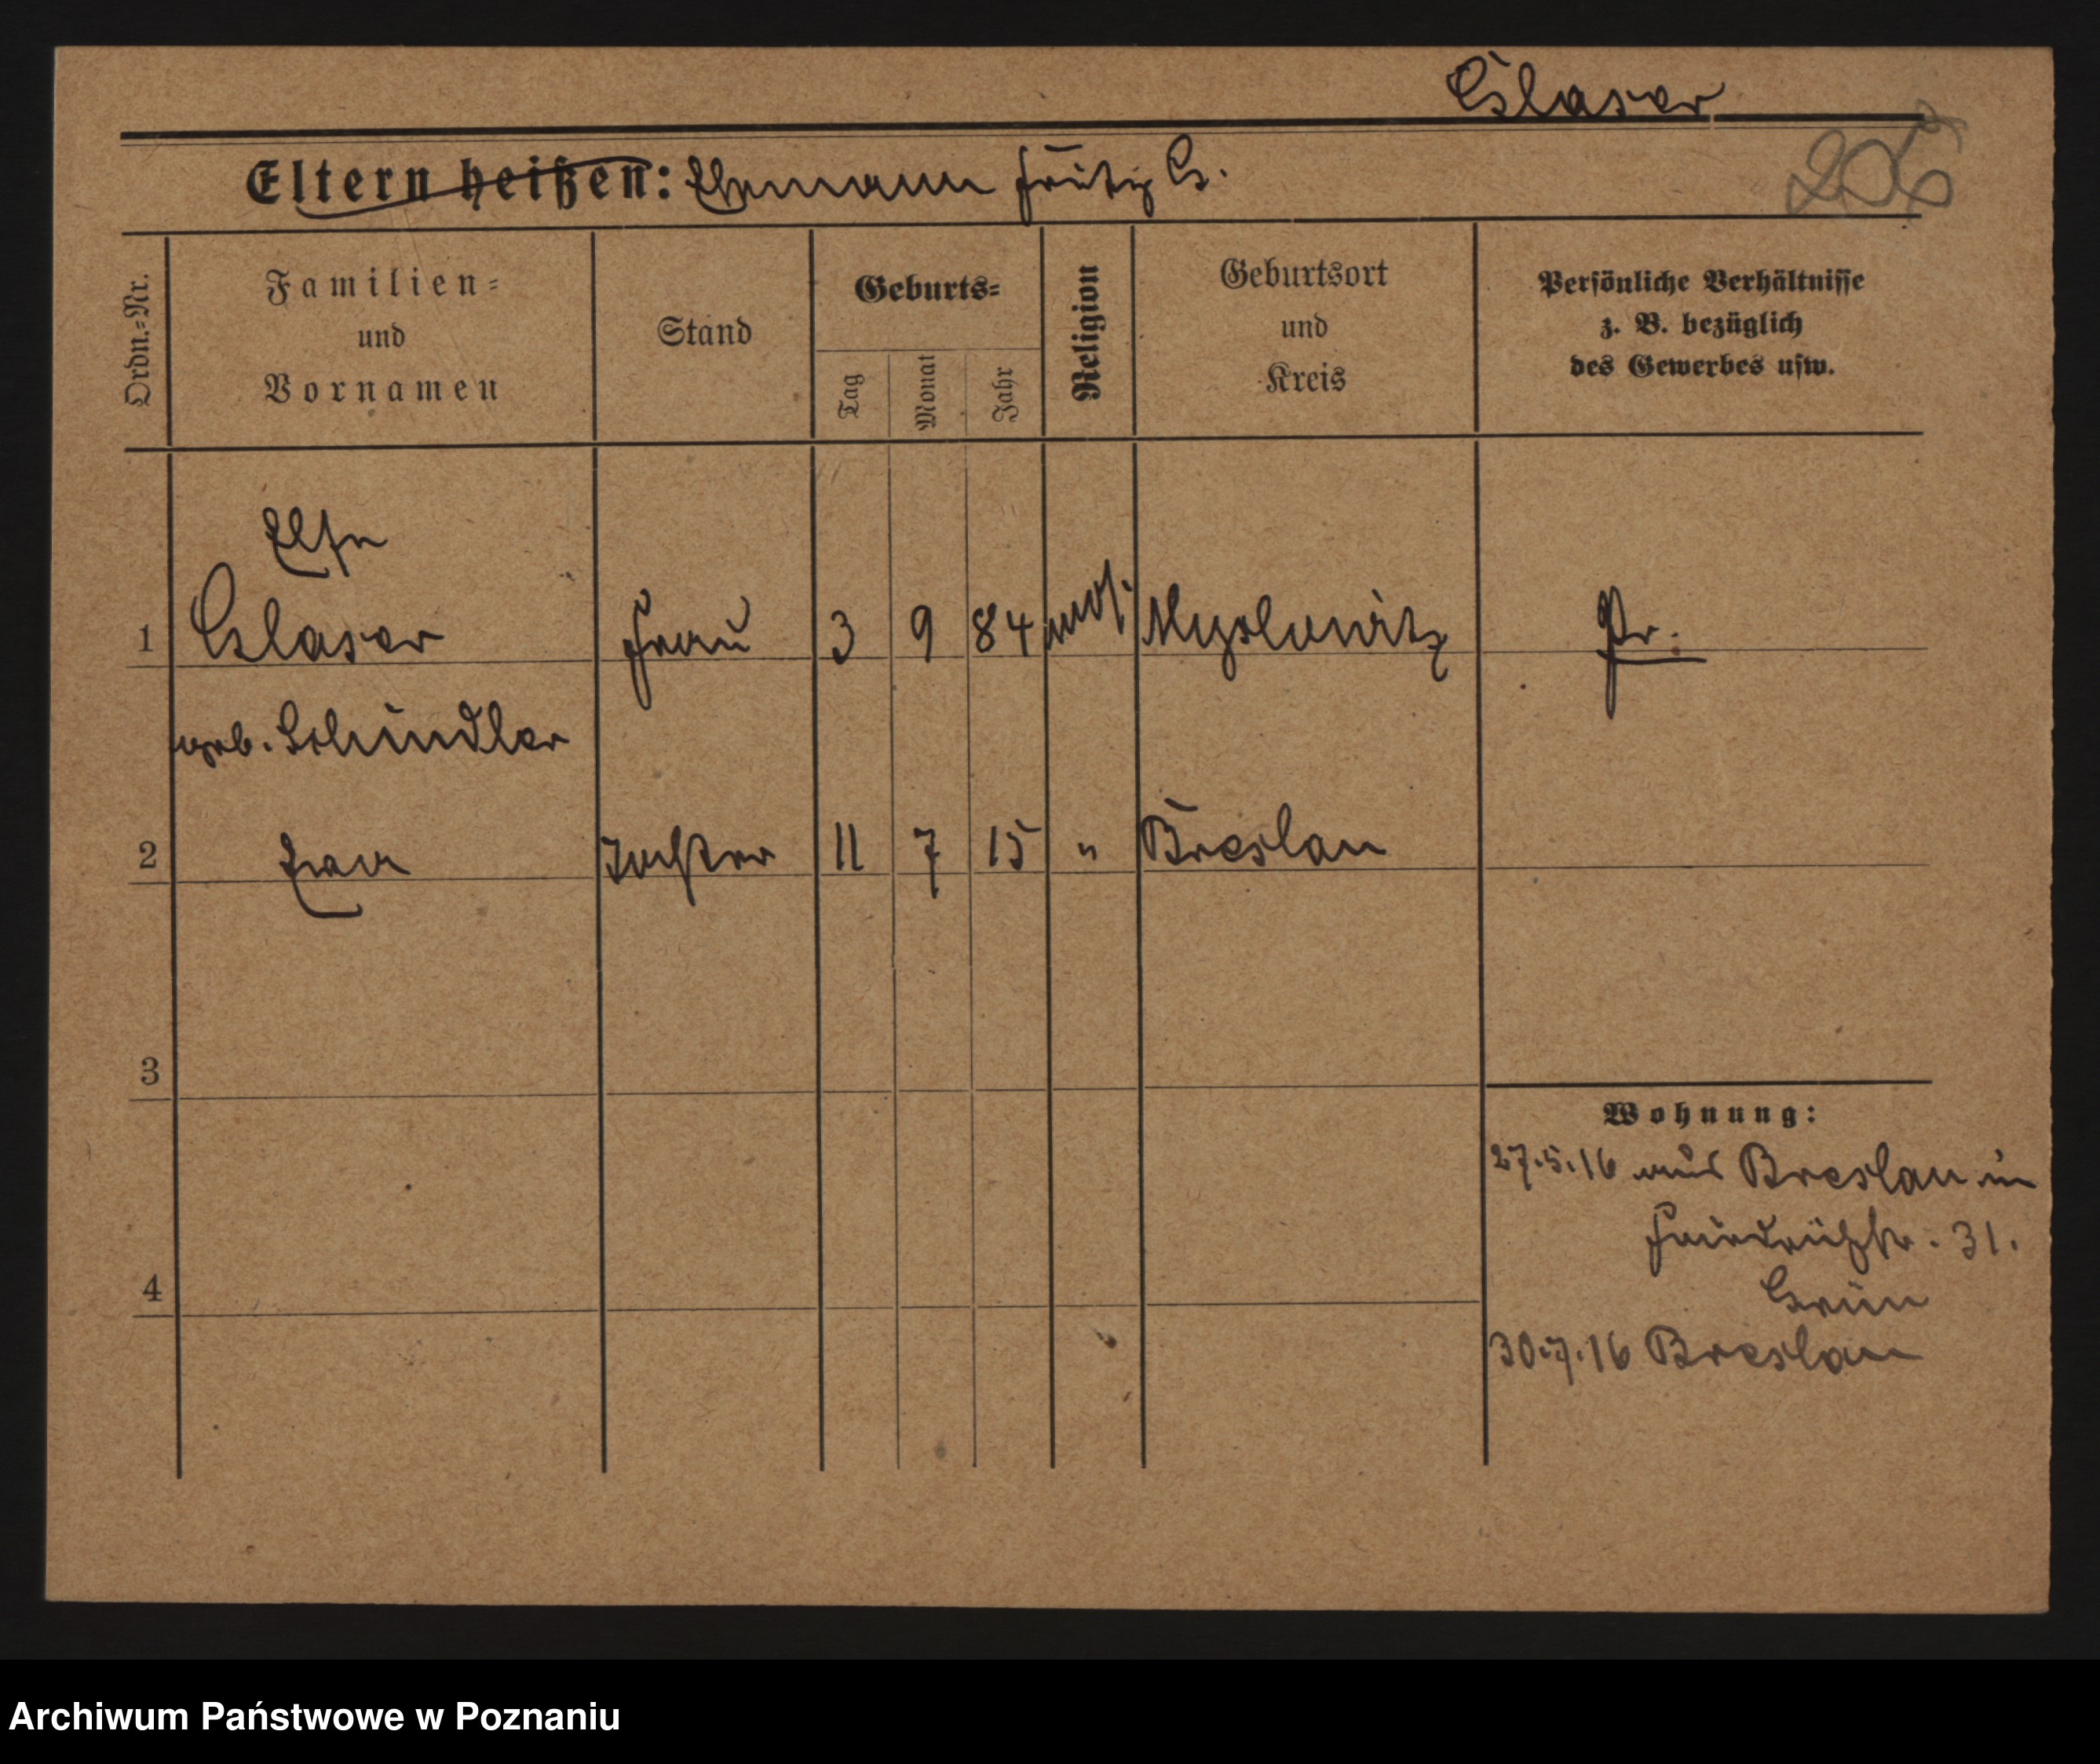 Glaser
Eltern heißen: Ehemann Fritz G.
205
Ordn.-Nr.
Familien-
und
Vornamen
Stand
Geburts-
Tag
Monat
Jahr
Religion
Geburtsort
und
Kreis
Persönliche Verhältnisse
z. B. bezüglich
des Gewerbes usw.
Else
1 Glaser Frau 3 9 84 mos. Myslowitz Pr.
geb. Schindler
2 Eva Tochter 11 7 15 " Breslau
3
Wohnung:
27.5.16 aus Breslau in
Friedrichstr. 31.
4
Grün
30.7.16 Breslau
Archiwum Państwowe w Poznaniu